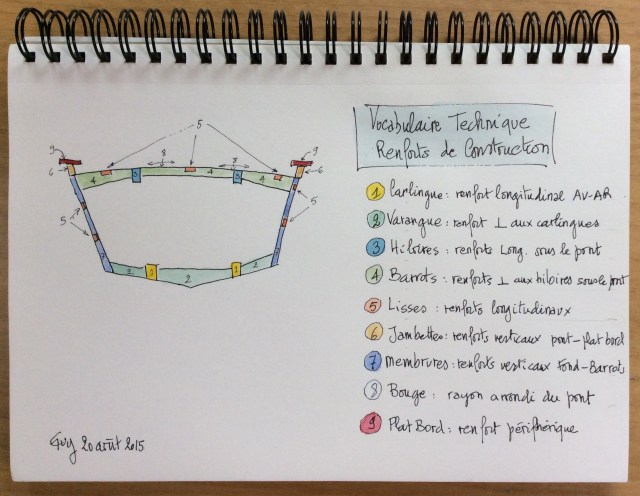 Vocabulaire Technique
Renforts de Construction
1 Carlingue : renfort longitudinal AV-AR
2 Varangue : renfort ⊥ aux carlingues
3 Hiloires : renforts Long. sous le pont
4 Barrots : renforts ⊥ aux hiloires sous le pont
5 Lisses : renforts longitudinaux
6 Jambettes : renforts verticaux pont-plat bord
7 Membrures : renforts verticaux Fond-Barrots
8 Bouge : rayon arrondi du pont
9 Plat Bord : renfort périphérique
5
9 8 8 9
6 4 3 4 3 4 6
5 5
7 2 1 2 1 2 7
Guy 20 août 2015